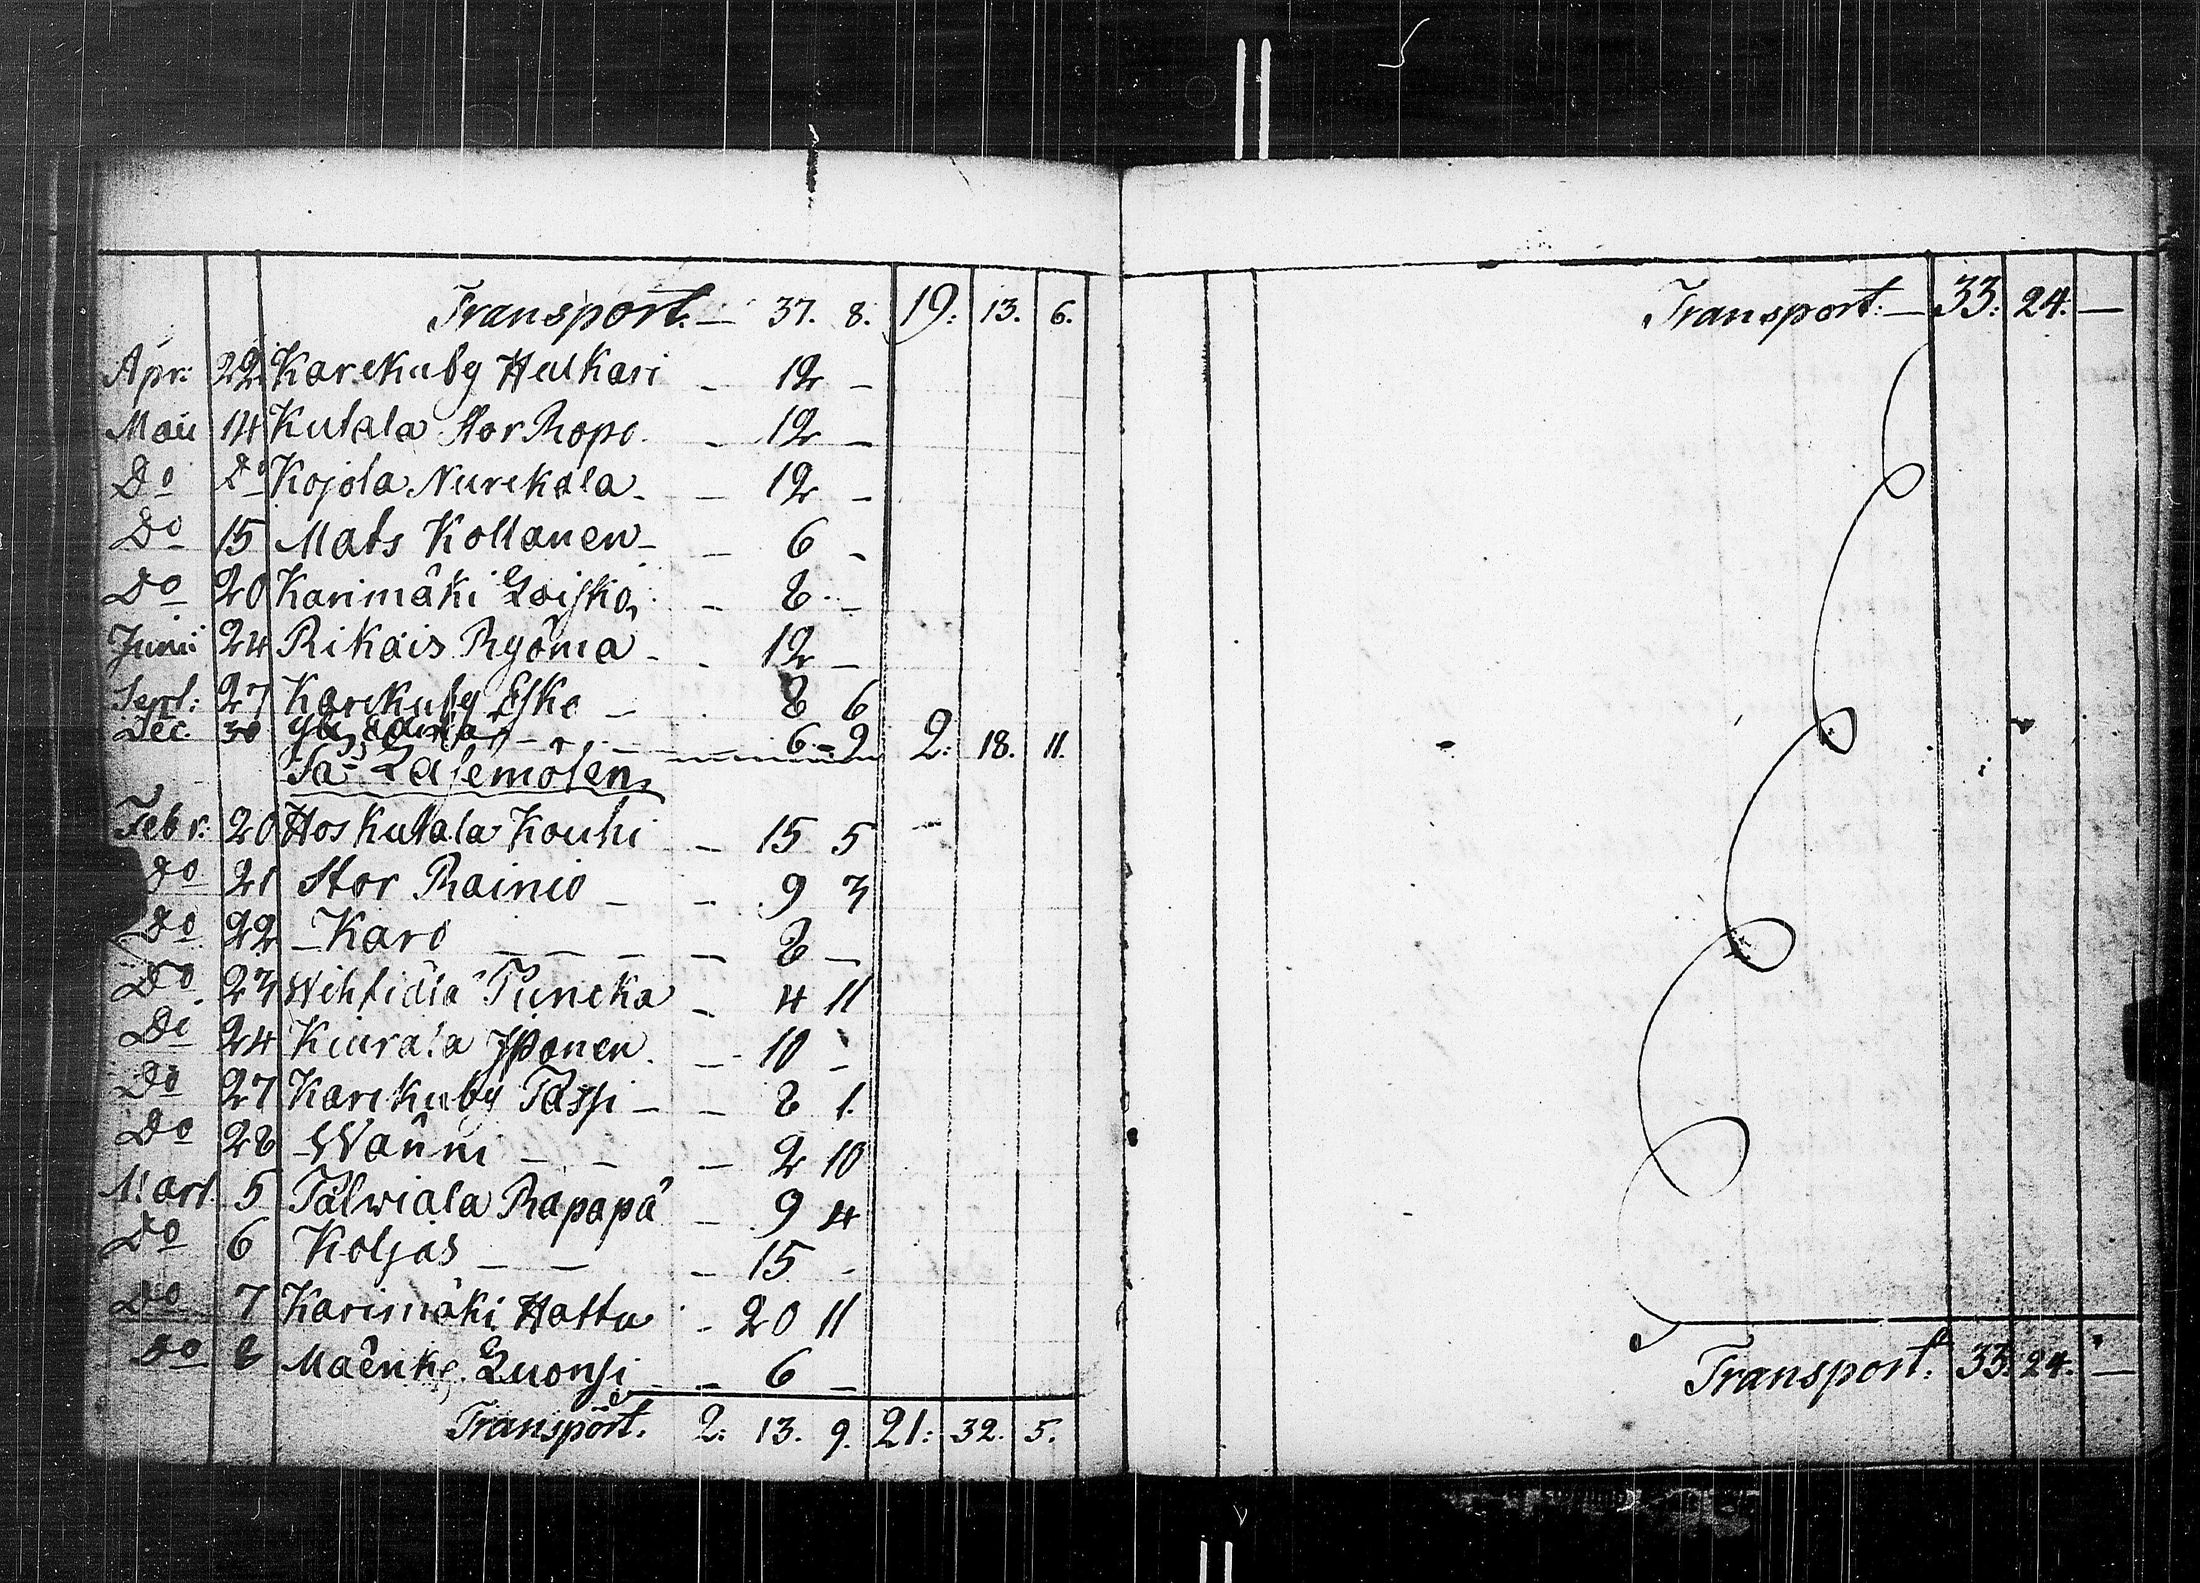 Transport. — 37. 8. 19: 13. 6.
Apr: 22 Karckuby Hulkari — 12 —
Maii 14 Kutala Stor Ropo. — 12 —
Do Do Kojola Nurckala. — 12 —
Do 15 Mats Koltanen — — 6 —
Do 20 Karimäki Loisko, — 8 —
Junii 24 Rikais Ryömä — — 12 —
Sept: 27 Karckuby Esko — 8 6
Dec. 30 — — 6 — 2 2: 18. 11.
På Läsemöten
Febr: 20 Hos Kutala Kouhi — 15 5
Do 21 Stor Rainio — — 9 7
Do 22 — Karo — — — 8 —
Do 23 Wihfiälä Puncka — 4 11
Do 24 Kiurala Ilponen — 10 —
Do 27 Karckuby Passi — — 8 1.
Do 28 Wänni — — — 2 10
Mart. 5 Talwiala Rapapä — 9 4
Do 6 Koljas — — — 15 —
Do 7 Karimäki Hattu — 20 11
Do 8 Mäenke Luonsi — — 6 —
Transport. 2: 13. 9. 21: 32. 5.
Transport: — 33: 24. —
Transport: 33: 24. —